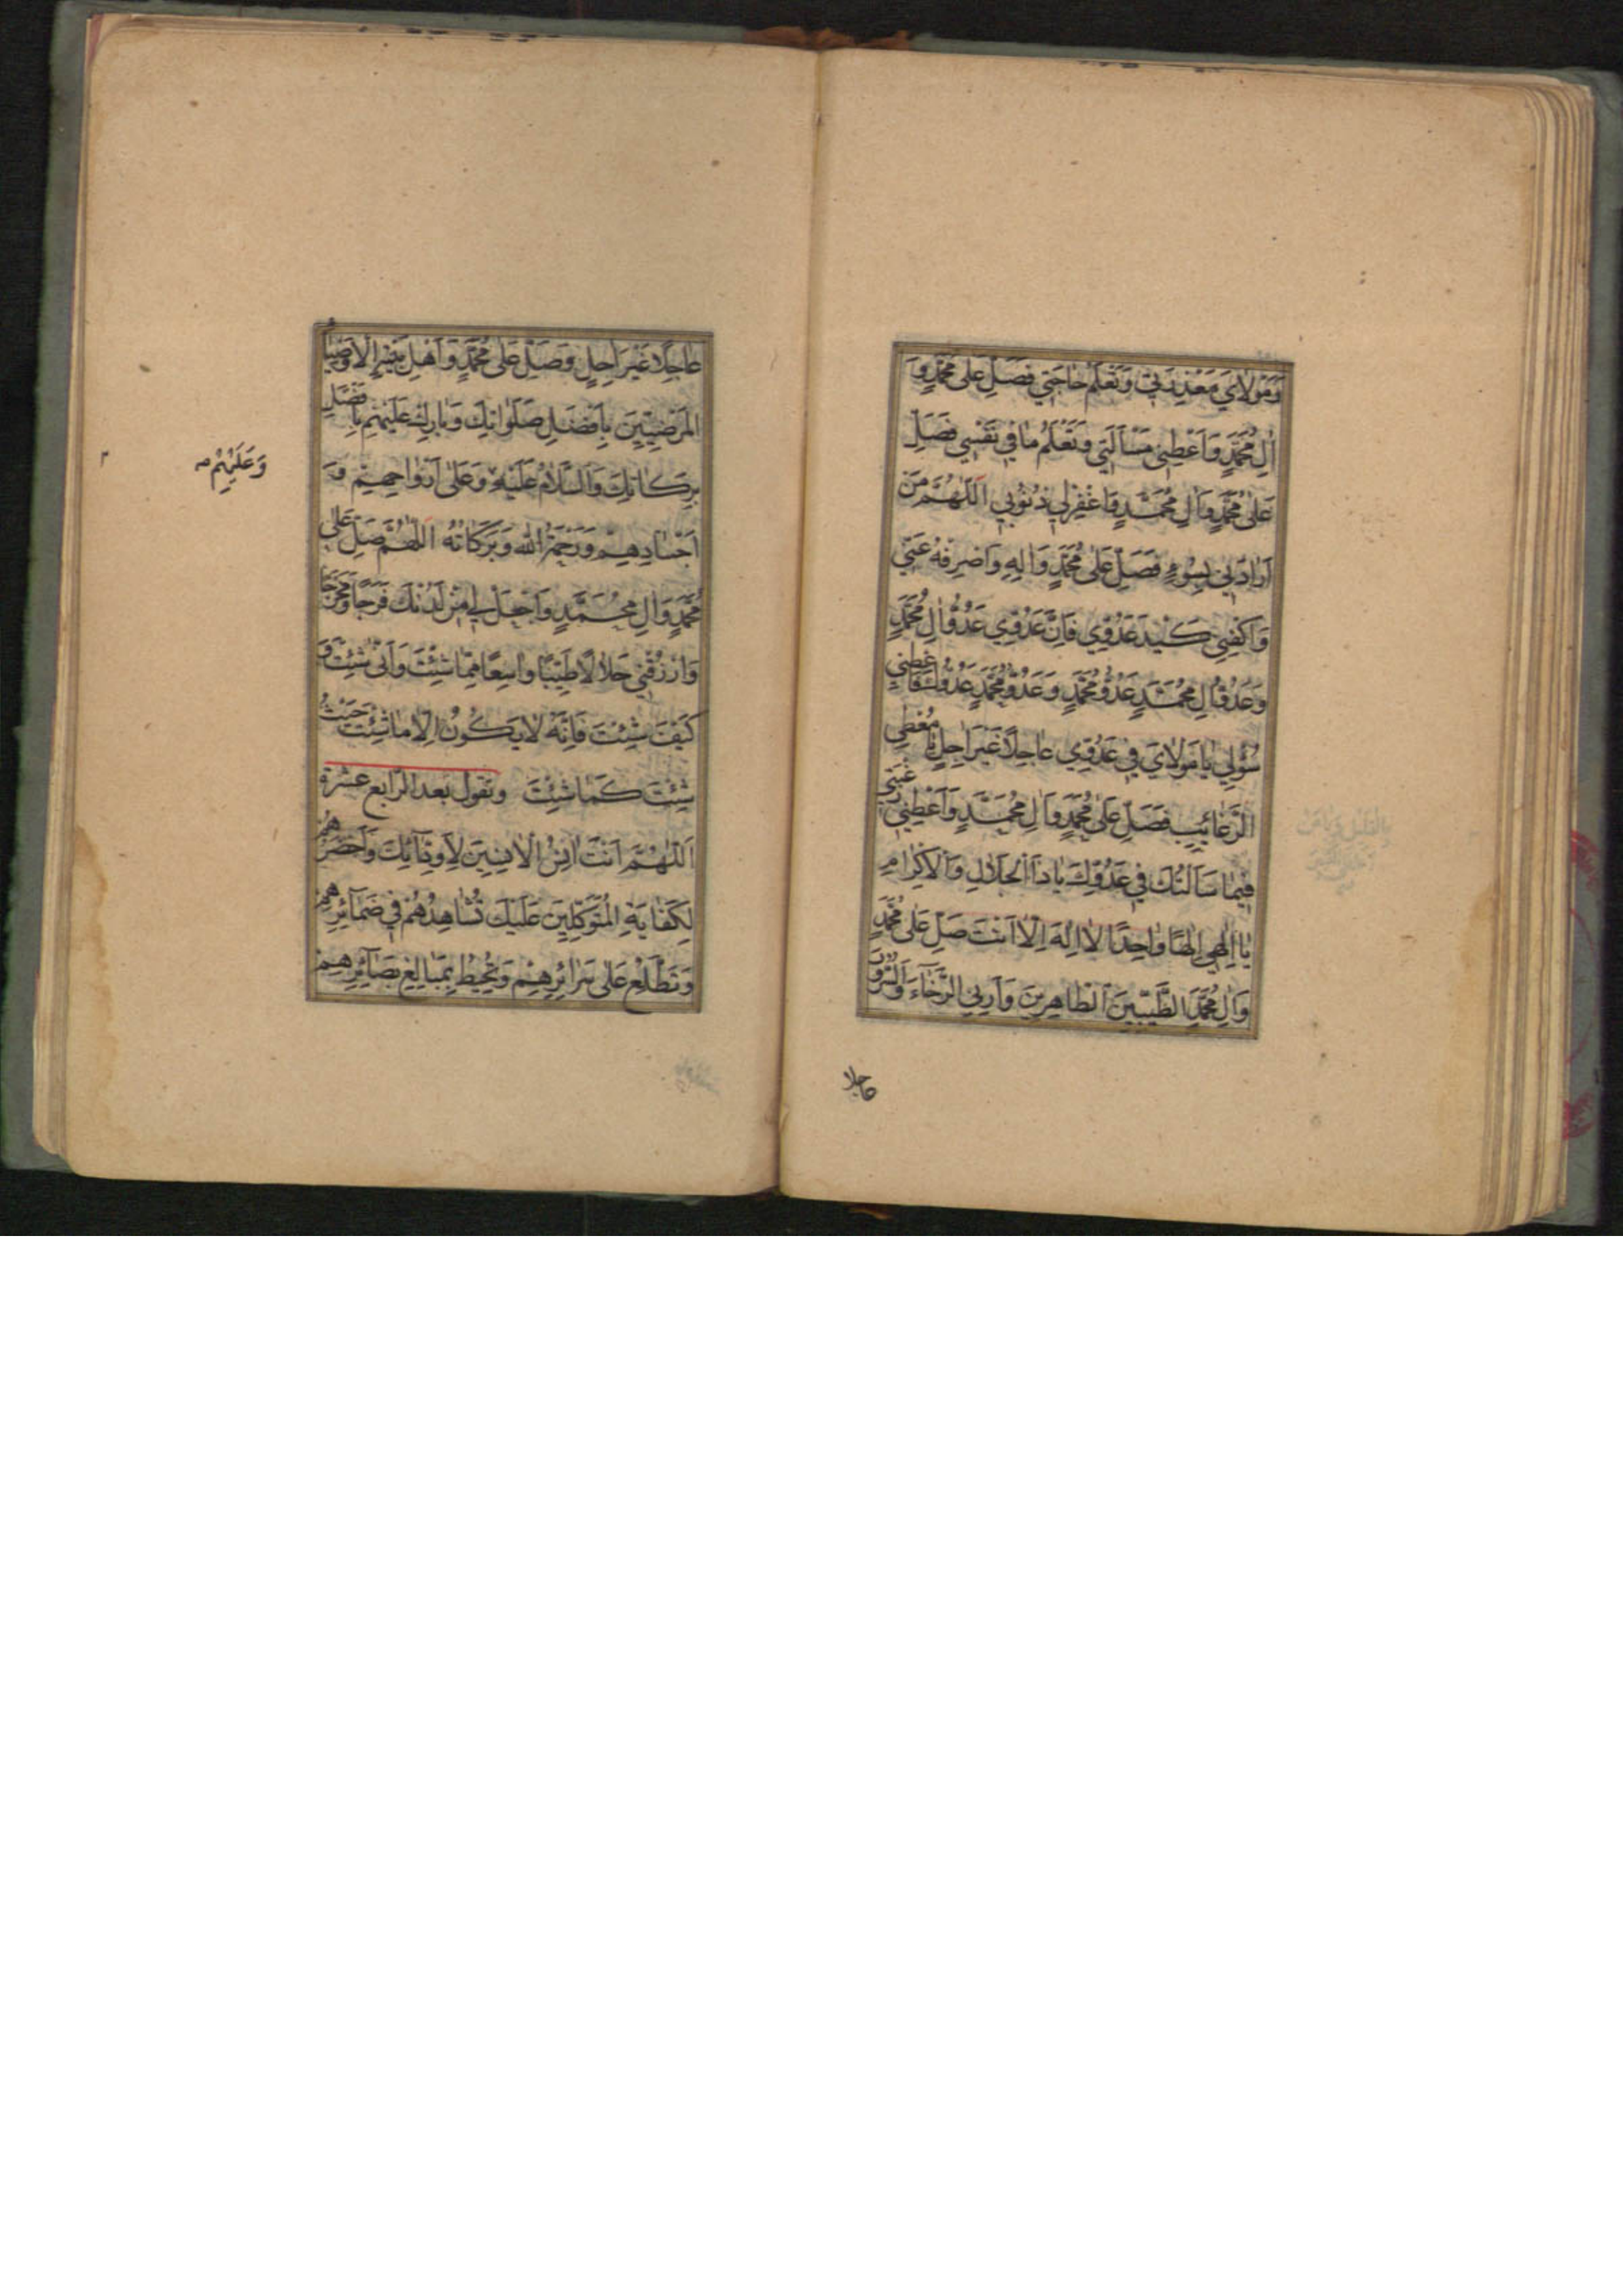 وَمَوْلَايَ مَعْذِرَتِي وَتَعْلَمُ حَاجَتِي فَصَلِّ عَلَى مُحَمَّدٍ وَ
اٰلِ مُحَمَّدٍ وَاَعْطِنِي مَسْاَلَتِي وَتَعْلَمُ مَا فِي نَفْسِي فَصَلِّ
عَلَى مُحَمَّدٍ وَاٰلِ مُحَمَّدٍ وَاغْفِرْ لِي ذُنُوبِي اَللّٰهُمَّ مَنْ
اَرَادَنِي بِسُوءٍ فَصَلِّ عَلَى مُحَمَّدٍ وَاٰلِهِ وَاصْرِفْهُ عَنِّي
وَاكْفِنِي كَيْدَ عَدُوِّي فَاِنَّ عَدُوِّي عَدُوُّ اٰلِ مُحَمَّدٍ
وَعَدُوَّ اٰلِ مُحَمَّدٍ عَدُوُّ مُحَمَّدٍ وَعَدُوَّ مُحَمَّدٍ عَدُوُّكَ فَاَعْطِنِي
سُؤْلِي يَا مَوْلَايَ فِي عَدُوِّي عَاجِلًا غَيْرَ اٰجِلٍ يَا مُعْطِيَ
الرَّغَائِبِ فَصَلِّ عَلَى مُحَمَّدٍ وَاٰلِ مُحَمَّدٍ وَاَعْطِنِي رَغْبَتِي
فِيمَا سَاَلْتُكَ فِي عَدُوِّكَ يَا ذَا الْجَلَالِ وَالْاِكْرَامِ
يَا اِلٰهِي اِلٰهًا وَاحِدًا لَا اِلٰهَ اِلَّا اَنْتَ صَلِّ عَلَى مُحَمَّدٍ
وَاٰلِ مُحَمَّدٍ الطَّيِّبِينَ الطَّاهِرِينَ وَاَرِنِي الرَّخَاءَ وَالسُّرُورَ
عاجلا
عَاجِلًا غَيْرَ اٰجِلٍ وَصَلِّ عَلَى مُحَمَّدٍ وَاَهْلِ بَيْتِهِ الْاَوْصِيَاءِ
الْمَرْضِيِّينَ بِاَفْضَلِ صَلَوَاتِكَ وَبَارِكْ عَلَيْهِمْ بِاَفْضَلِ
بَرَكَاتِكَ وَالسَّلَامُ عَلَيْهِ وَعَلَى اَرْوَاحِهِمْ وَ
وَعَلَيْهِمْ
اَجْسَادِهِمْ وَرَحْمَةُ اللّٰهِ وَبَرَكَاتُهُ اَللّٰهُمَّ صَلِّ عَلَى
مُحَمَّدٍ وَاٰلِ مُحَمَّدٍ وَاجْعَلْ لِي مِنْ لَدُنْكَ فَرَجًا وَمَخْرَجًا
وَارْزُقْنِي حَلَالًا طَيِّبًا وَاسِعًا مِمَّا شِئْتَ وَاَنَّى شِئْتَ وَ
كَيْفَ شِئْتَ فَاِنَّهُ لَا يَكُونُ اِلَّا مَا شِئْتَ حَيْثُ
شِئْتَ كَمَا شِئْتَ وتقول بعد الرابع عشرة
اَللّٰهُمَّ اَنْتَ اٰنَسُ الْاٰنِسِينَ لِاَوِدَّائِكَ وَاَحْضَرُهُمْ
لِكِفَايَةِ الْمُتَوَكِّلِينَ عَلَيْكَ تُشَاهِدُهُمْ فِي ضَمَائِرِهِمْ
وَتَطَّلِعُ عَلَى سَرَائِرِهِمْ وَتُحِيطُ بِمَبَالِغِ بَصَائِرِهِمْ